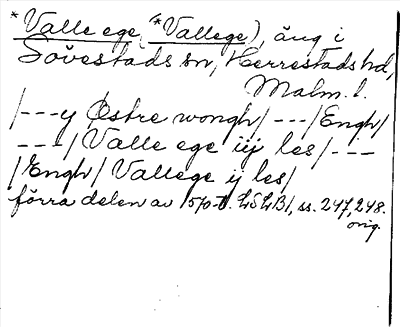 *Valle ege (*Vallege), äng i
Sövestads sn, Herrestads hd,
Malm. l.
/---y Østre wongh/---/Engh/
---/Valle ege iij les/---
/Engh/ Vallege ij les/
förra delen av 1570-t. LSLB1, ss. 247, 248.
orig.